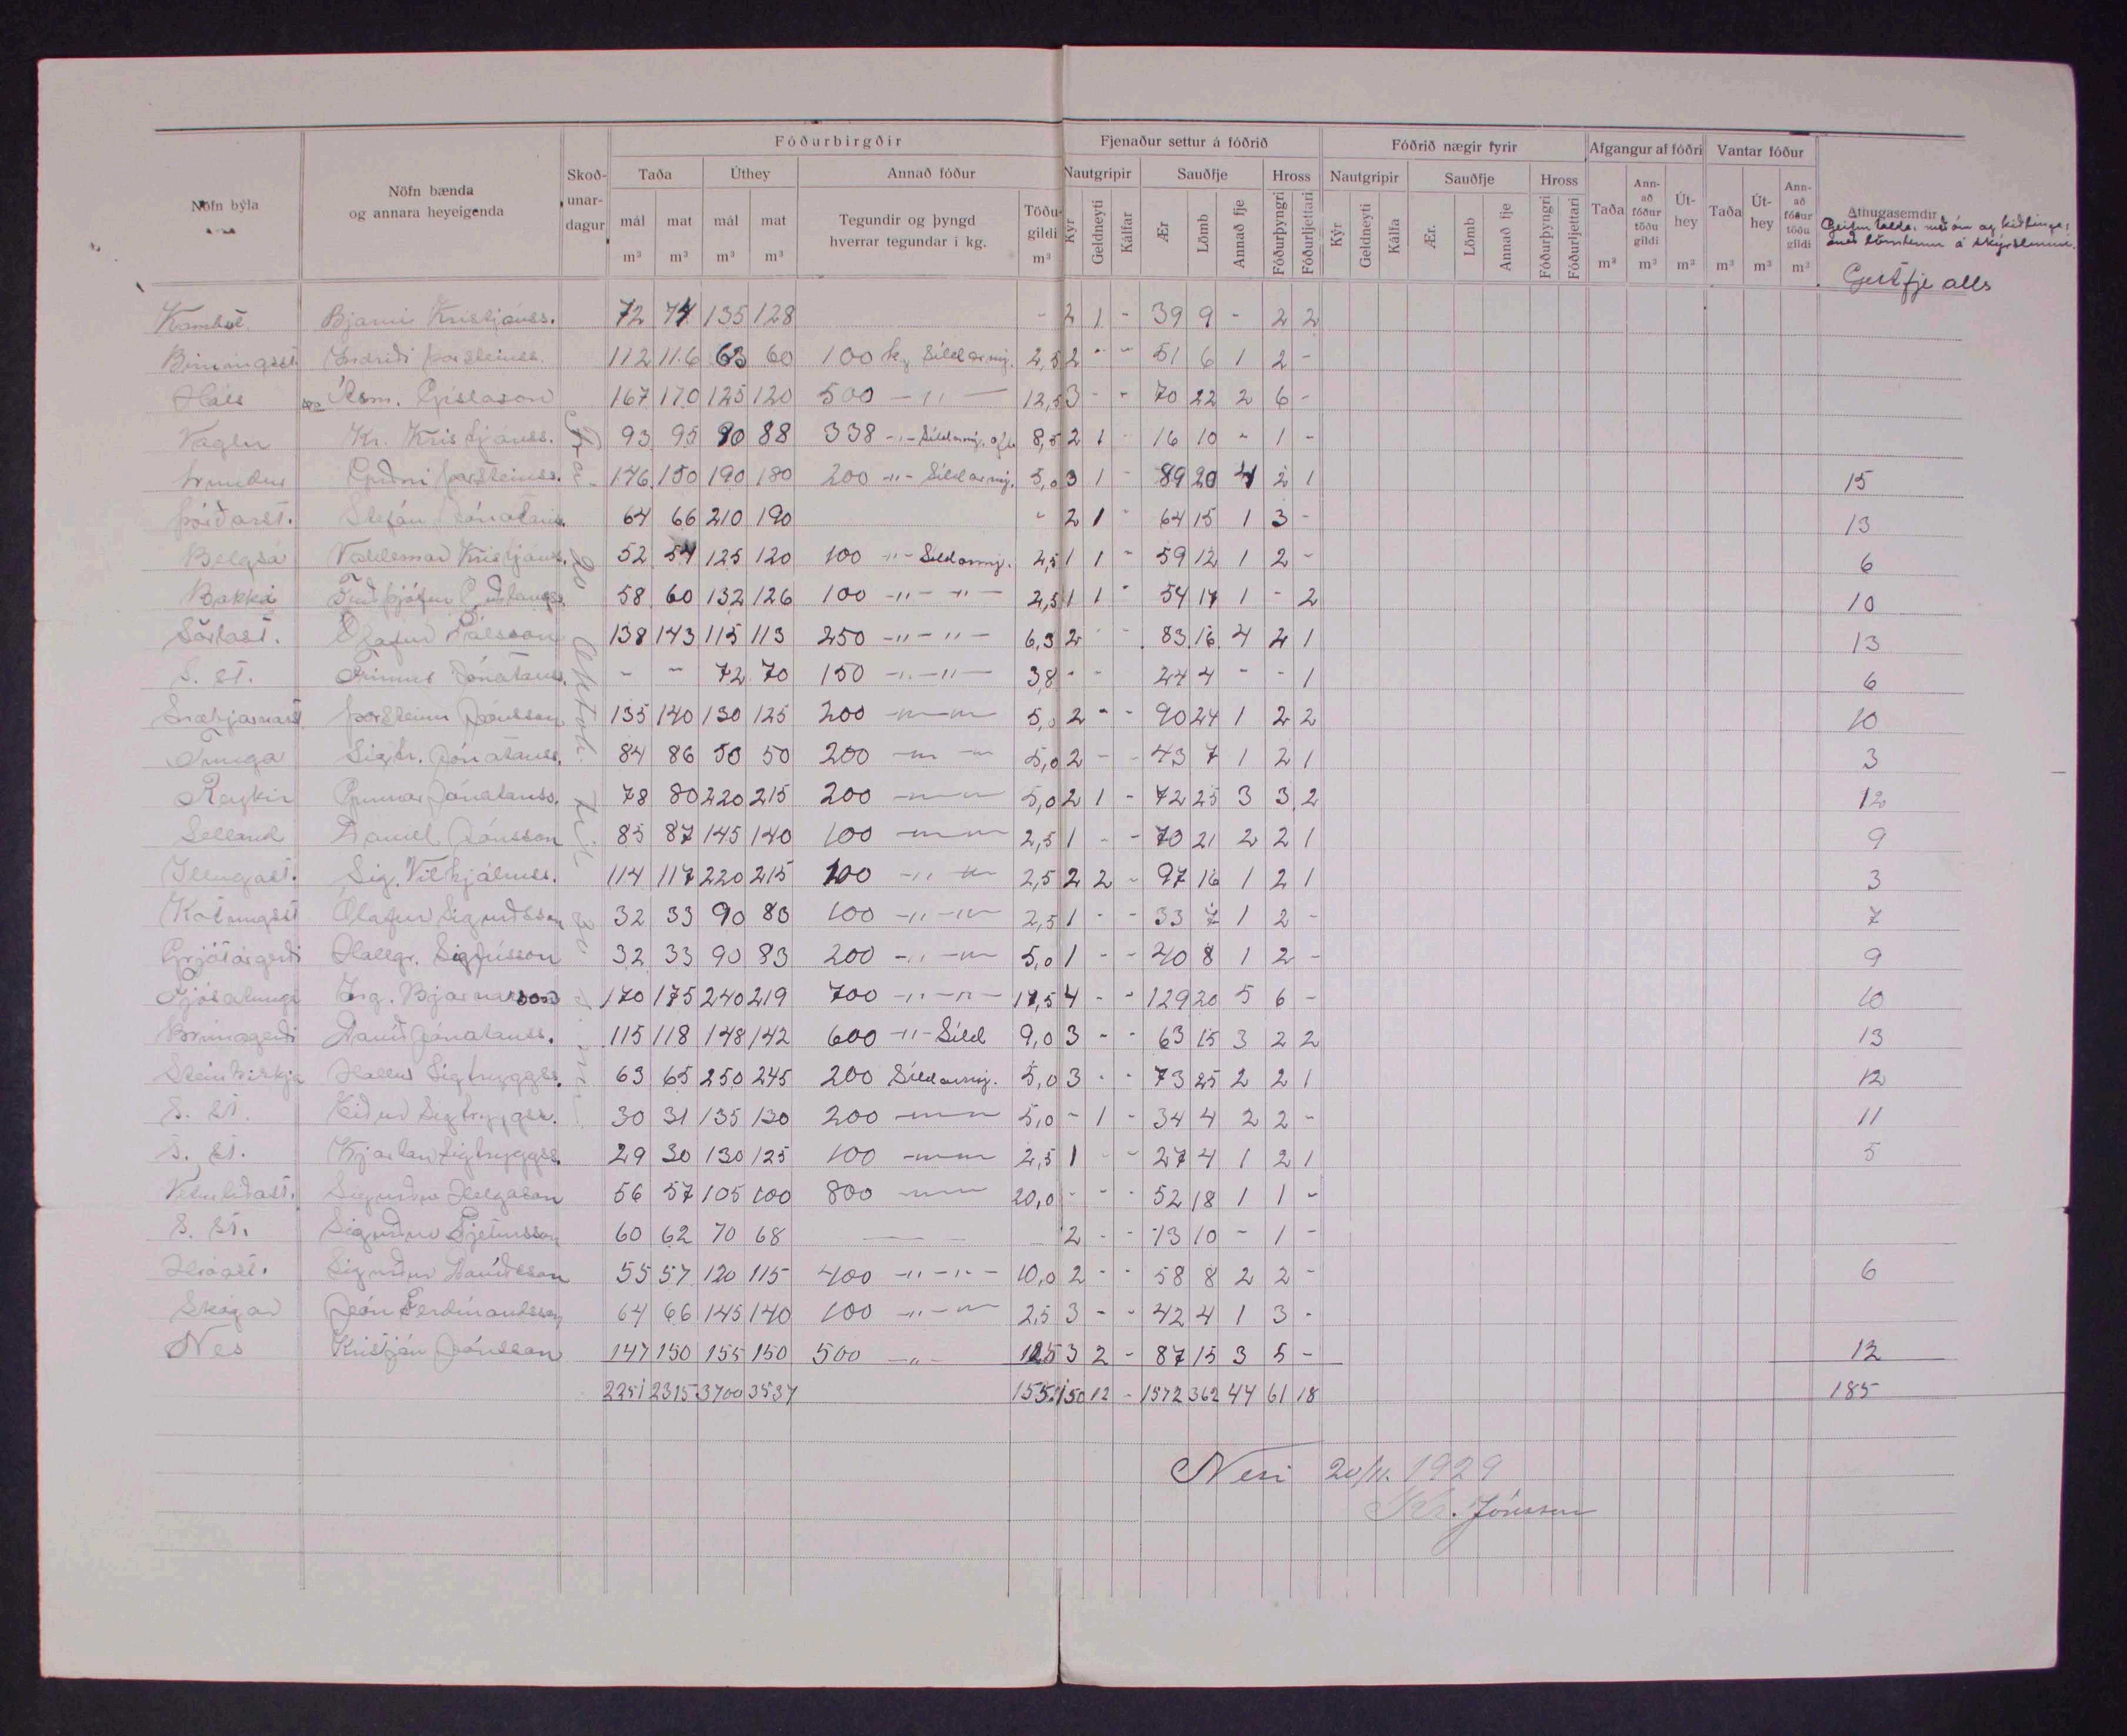 Fóðurbirgðir Fjenaður settur á fóðrið Fóðrið nægir fyrir Afgangur af fóðri Vantar fóður
Nöfn býla Nöfn bænda og annara heyeigenda Skoð-unar-dagur Taða Úthey Annað fóður Nautgripir Sauðfje Hross Nautgripir Sauðfje Hross Taða Ann-að fóður töðu gildi Út-hey Taða Út-hey Ann-að fóður töðu gildi Athugasemdir
mál m³ mat m³ mál m³ mat m³ Tegundir og þyngd hverrar tegundar í kg. Töðu-gildi m³ Kýr Geldneyti Kálfar Ær Lömb Annað fje Fóðurþyngri Fóðurljettari Kýr Geldneyti Kálfa Ær. Lömb Annað fje Fóðurþyngri Fóðurljettari m³ m³ m³ m³ m³ m³
Geitur taldar með ám og kiðlingar
með lömbum á skýrslunni.
Geitfje alls
Frá 20 október til 30.
Kambst. Bjarni Kristjánss. 72 74 135 128 - 2 1 - 39 9 - 2 2
Birningsst. Indriði Þorsteinss. 112 116 63 60 100 kg Síldarmj. 2,5 2 - - 51 6 1 2 -
Háls Ásm. Gíslason 167 170 125 120 500 -"- 12,5 3 - - 70 22 2 6 -
Vaglir Kr. Kristjánss. 93 95 90 88 338 -"- Síldarmj. ofl 8,5 2 1 - 16 10 - 1 -
Lundur Guðni Þorsteinss. 146 150 190 180 200 -"- Síldarmj. 5,0 3 1 - 89 20 4 2 1 15
Þórðarst. Stefán Jónatanss. 64 66 210 190 - 2 1 - 64 15 1 3 - 13
Belgsá Valdemar Kristjánss. 52 54 125 120 100 -"- Síldarmj. 2,5 1 1 - 59 12 1 2 - 6
Bakki Friðþjófur Guðlaugss. 58 60 132 126 100 -"- -"- 2,5 1 1 - 54 14 1 - 2 10
Sörlast. Ólafur Pálsson 138 143 115 113 250 -"- "- 6,3 2 - - 83 16 4 2 1 13
S. st. Finnur Jónatanss. - - 72 70 150 -"- -"- 3,8 - - 24 4 - - 1 6
Snæbjarnarst. Þorsteinn Jónsson 135 140 130 125 200 -"-"- 5,0 2 - - 90 24 1 2 2 10
Tunga Sigtr. Jónatanss. 84 86 50 50 200 -"- -"- 5,0 2 - - 43 7 1 2 1 3
Reykir Gunnar Jónatanss. 78 80 220 215 200 -"-"- 5,0 2 1 - 72 25 3 3 2 12
Selland Daníel Jónsson 85 87 145 140 100 -"-"- 2,5 1 - - 70 21 2 2 1 9
Illugast. Sig. Vilhjálmss. 114 117 220 215 100 -"- -"- 2,5 2 2 - 97 16 1 2 1 3
Kotungsst. Ólafur Sigurðsson 32 33 90 83 100 -"-"- 2,5 1 - - 33 7 1 2 - 7
Grjótárgerði Hallgr. Sigfússon 32 33 90 83 200 -"- -"- 5,0 1 - - 40 8 1 2 - 9
Fjósatunga Ing. Bjarnarson 170 175 240 219 700 -"-"- 17,5 4 - - 129 20 5 6 - 10
Brúnagerði Davíð Jónatanss. 115 118 148 142 600 -"- Síld 9,0 3 - - 63 15 3 2 2 13
Steinkirkja Hallur Sigtryggss. 63 65 250 245 200 Síldarmj. 5,0 3 - - 73 25 2 2 1 12
S. st. Eiður Sigtryggss. 30 31 135 130 200 -"-"- 5,0 - 1 - 34 4 2 2 - 11
S. st. Kjartan Sigtryggss. 29 30 130 125 100 -"-"- 2,5 1 - - 27 4 1 2 1 5
Veturliðast. Sigurður Helgason 56 57 105 100 800 -"-"- 20,0 - - - 52 18 1 1 -
S. st. Sigurður Pjetursson 60 62 70 68 — 2 - - 13 10 - 1 -
Hróast. Sigurður Davíðsson 55 57 120 115 400 -"-"- 10,0 2 - - 58 8 2 2 - 6
Skógar Jón Ferdínandsson 64 66 145 140 100 -"-"- 2,5 3 - - 42 4 1 3 -
Nes Kristján Jónsson 147 150 155 150 500 -"- 12,5 3 2 - 87 15 3 5 - 12
2251 2315 3700 3537 155,1 50 12 - 1572 362 44 61 18 185
Nesi 20/11. 1929
Kr. Jónsson